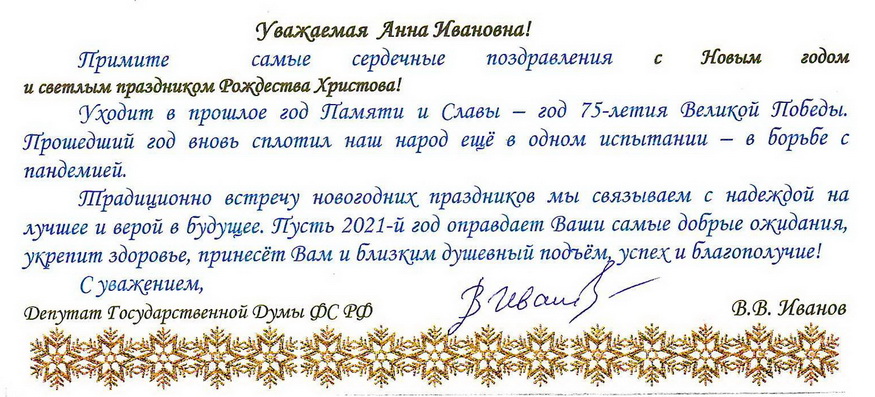 Уважаемая Анна Ивановна!
Примите самые сердечные поздравления с Новым годом
и светлым праздником Рождества Христова!
Уходит в прошлое год Памяти и Славы – год 75-летия Великой Победы.
Прошедший год вновь сплотил наш народ ещё в одном испытании – в борьбе с
пандемией.
Традиционно встречу новогодних праздников мы связываем с надеждой на
лучшее и верой в будущее. Пусть 2021-й год оправдает Ваши самые добрые ожидания,
укрепит здоровье, принесёт Вам и близким душевный подъём, успех и благополучие!
С уважением,
Депутат Государственной Думы ФС РФ В Иванов В.В. Иванов